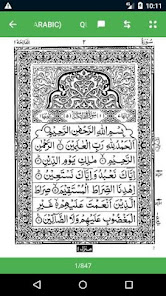 10:11
ARABIC)
بِسْمِ اللهِ الرَّحْمٰنِ الرَّحِيْمِ
اَلْحَمْدُ لِلّٰهِ رَبِّ الْعٰلَمِيْنَ ۝ الرَّحْمٰنِ
الرَّحِيْمِ ۝ مٰلِكِ يَوْمِ الدِّيْنِ ۝
اِيَّاكَ نَعْبُدُ وَاِيَّاكَ نَسْتَعِيْنُ ۝
اِهْدِنَا الصِّرَاطَ الْمُسْتَقِيْمَ ۝ صِرَاطَ
الَّذِيْنَ اَنْعَمْتَ عَلَيْهِمْ ۙ غَيْرِ
الْمَغْضُوْبِ عَلَيْهِمْ وَلَا الضَّآلِّيْنَ ۝
1/847